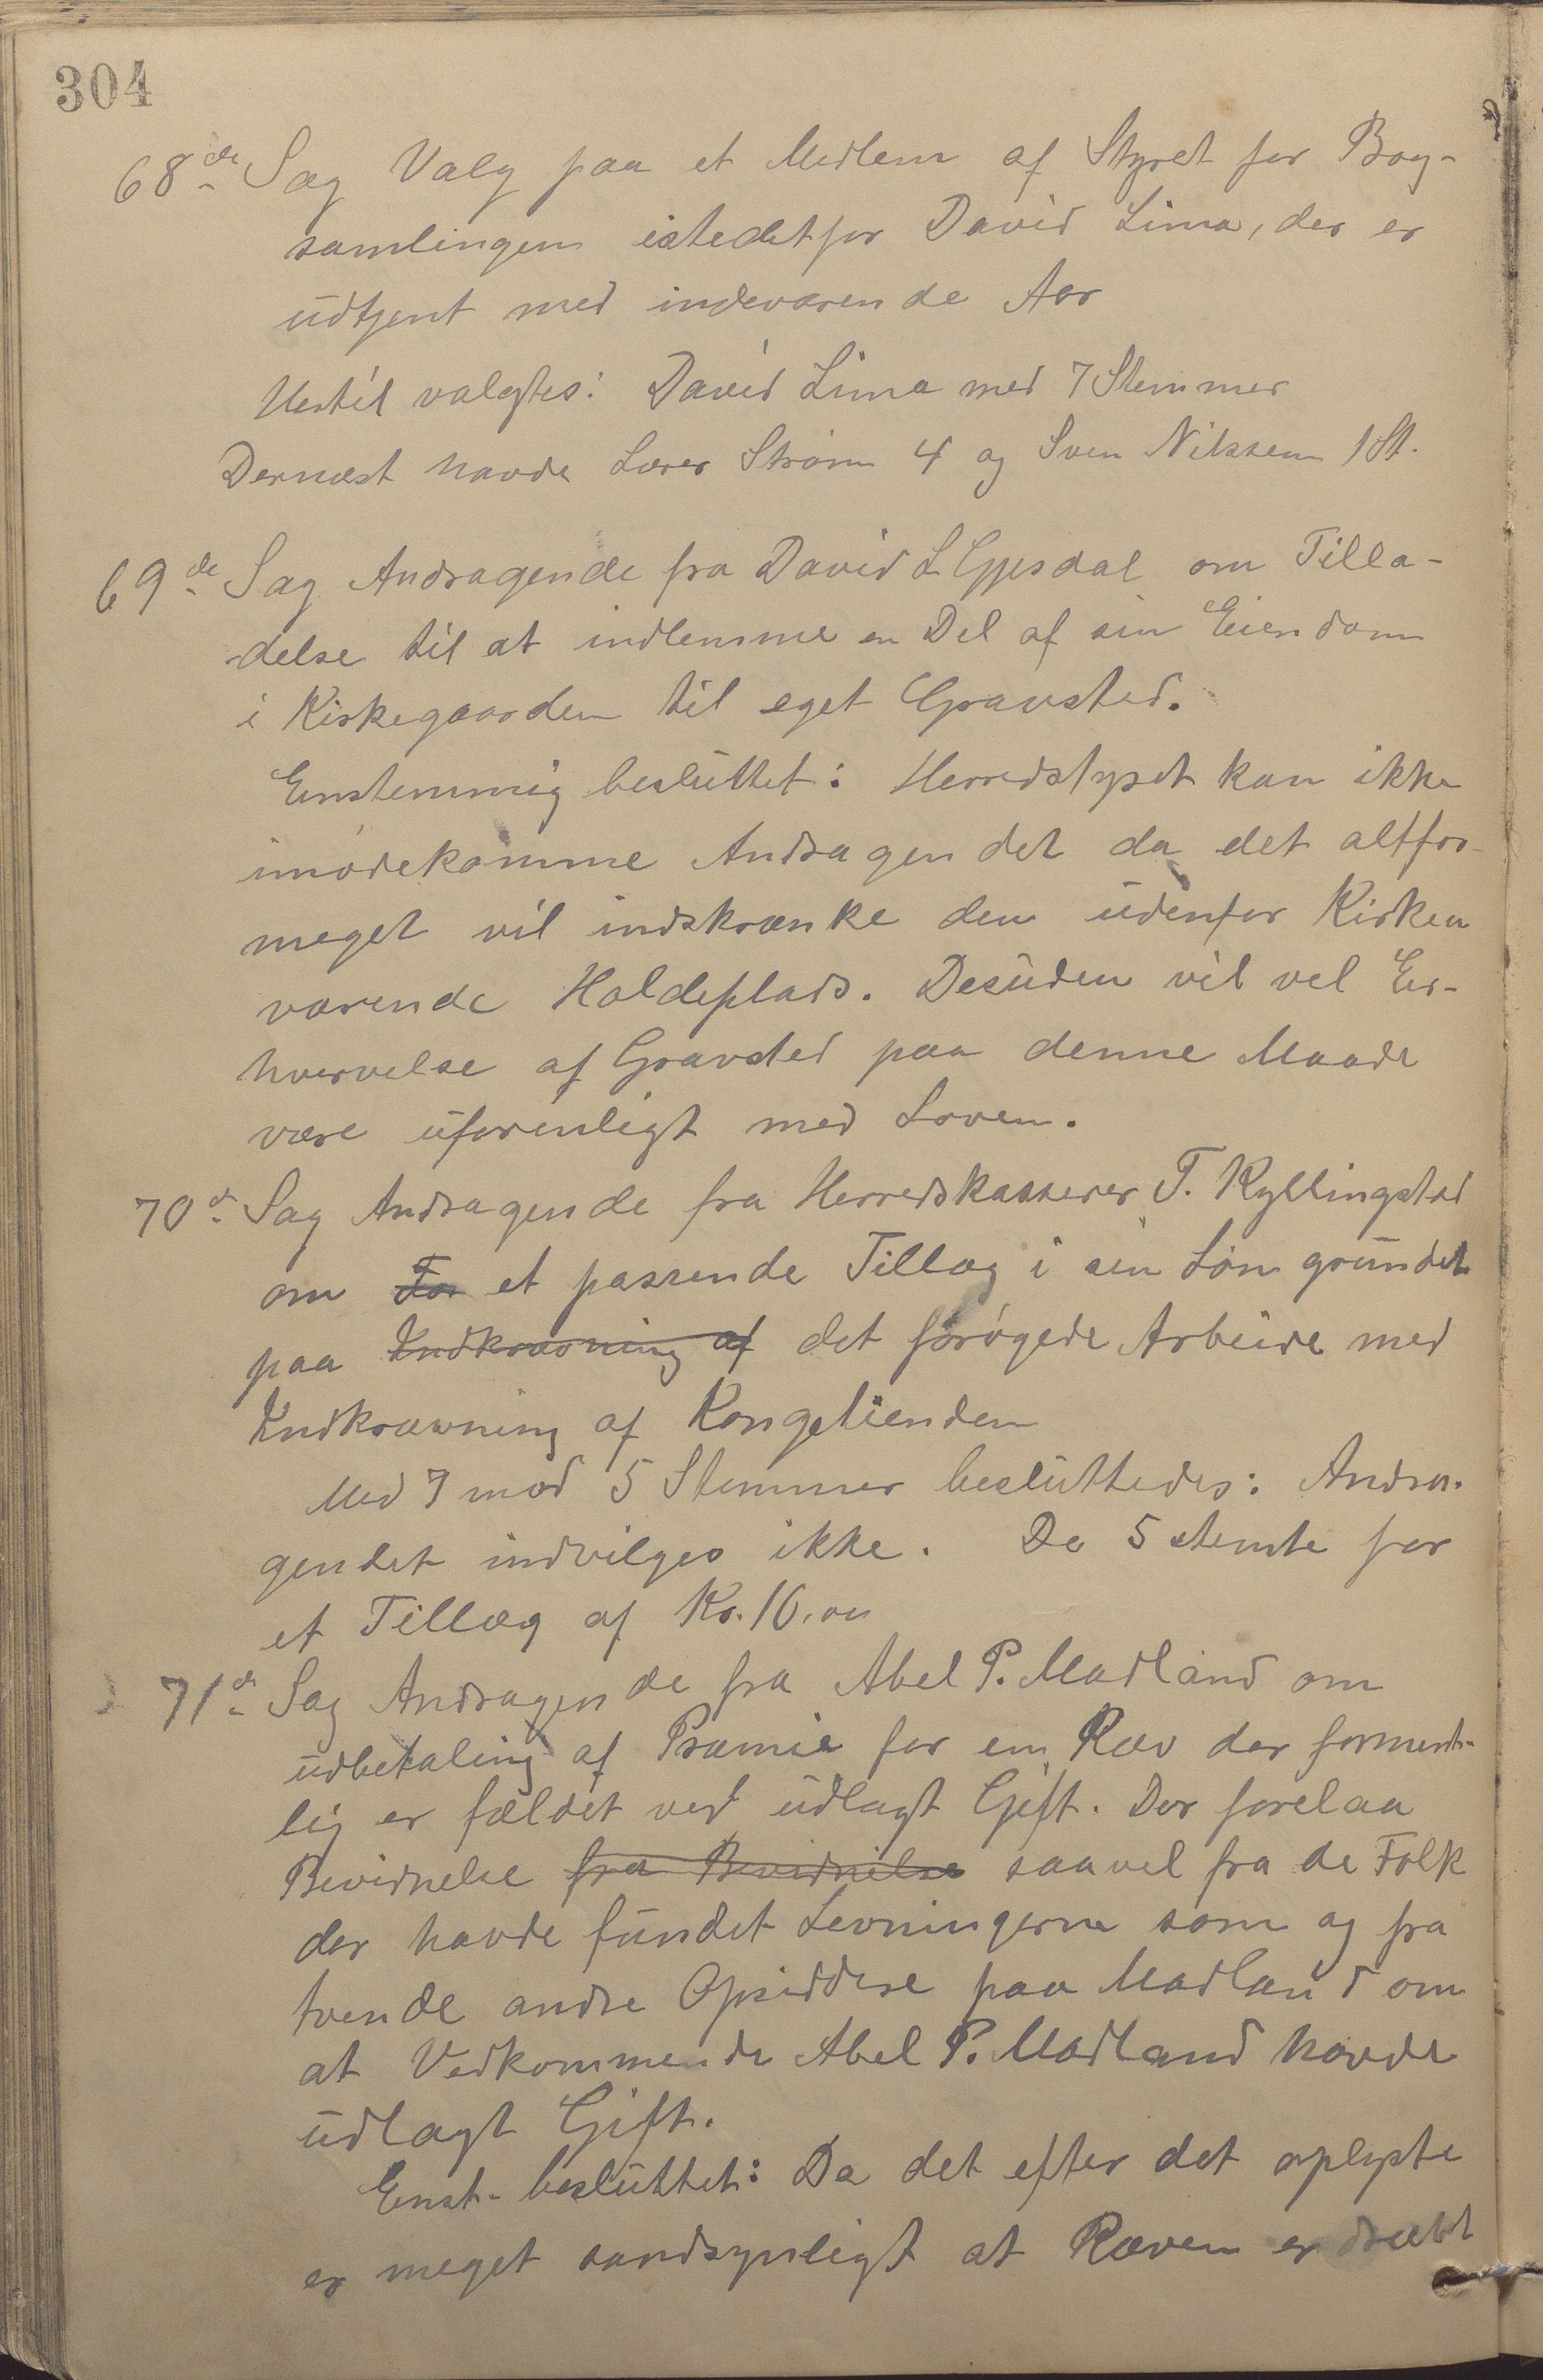 304
68de Sag Valg paa et Medlem af Styret for Bog-
samlingen istedetfor David Lima, der er
udtjent med indeværende Aar
Hertil valgtes: David Lima med 7 Stemmer
Dernæst havde Lærer Strøm 4 og Sven Nilssen 1 St.
69de Sag Andragende fra David L Gjesdal om Tilla-
delse til at indlemme en Del af sin Eiendom
i Kirkegaarden til eget Gravsted.
Enstemmig besluttet: Herredstyret kan ikke
imødekomme Andragendet da det altfor
meget vil indskrænke den udenfor Kirken
værende Holdeplads. Desuden vil vel Er-
hvervelse af Gravsted paa denne Maade
være uforenligt med Loven.
70de Sag Andragende fra Herredskasserer T. Kyllingstad
om For et passende Tillæg i sin Løn grundet
paa Indkrævning af det forøgede Arbeide med
Indkrævning af Kongetienden
Med 7 mod 5 Stemmer besluttedes: Andra-
gendet indvilges ikke. De 5 stemte for
et Tillæg af Kr. 10,00
71de Sag Andragende fra Abel P. Madland om
udbetaling af Præmie for en Ræv der forment-
lig er fældet ved udlagt Gift. Der forelaa
Bevidnelse fra Bevidnelse saavel fra de Folk
der havde fundet Levningerne som og fra
tvende andre Opsiddere paa Madland om
at Vedkommende Abel P. Madland havde
udlagt Gift.
Enst. besluttet: Da det efter det oplyste
er meget sandsynligt at Ræven er dræbt